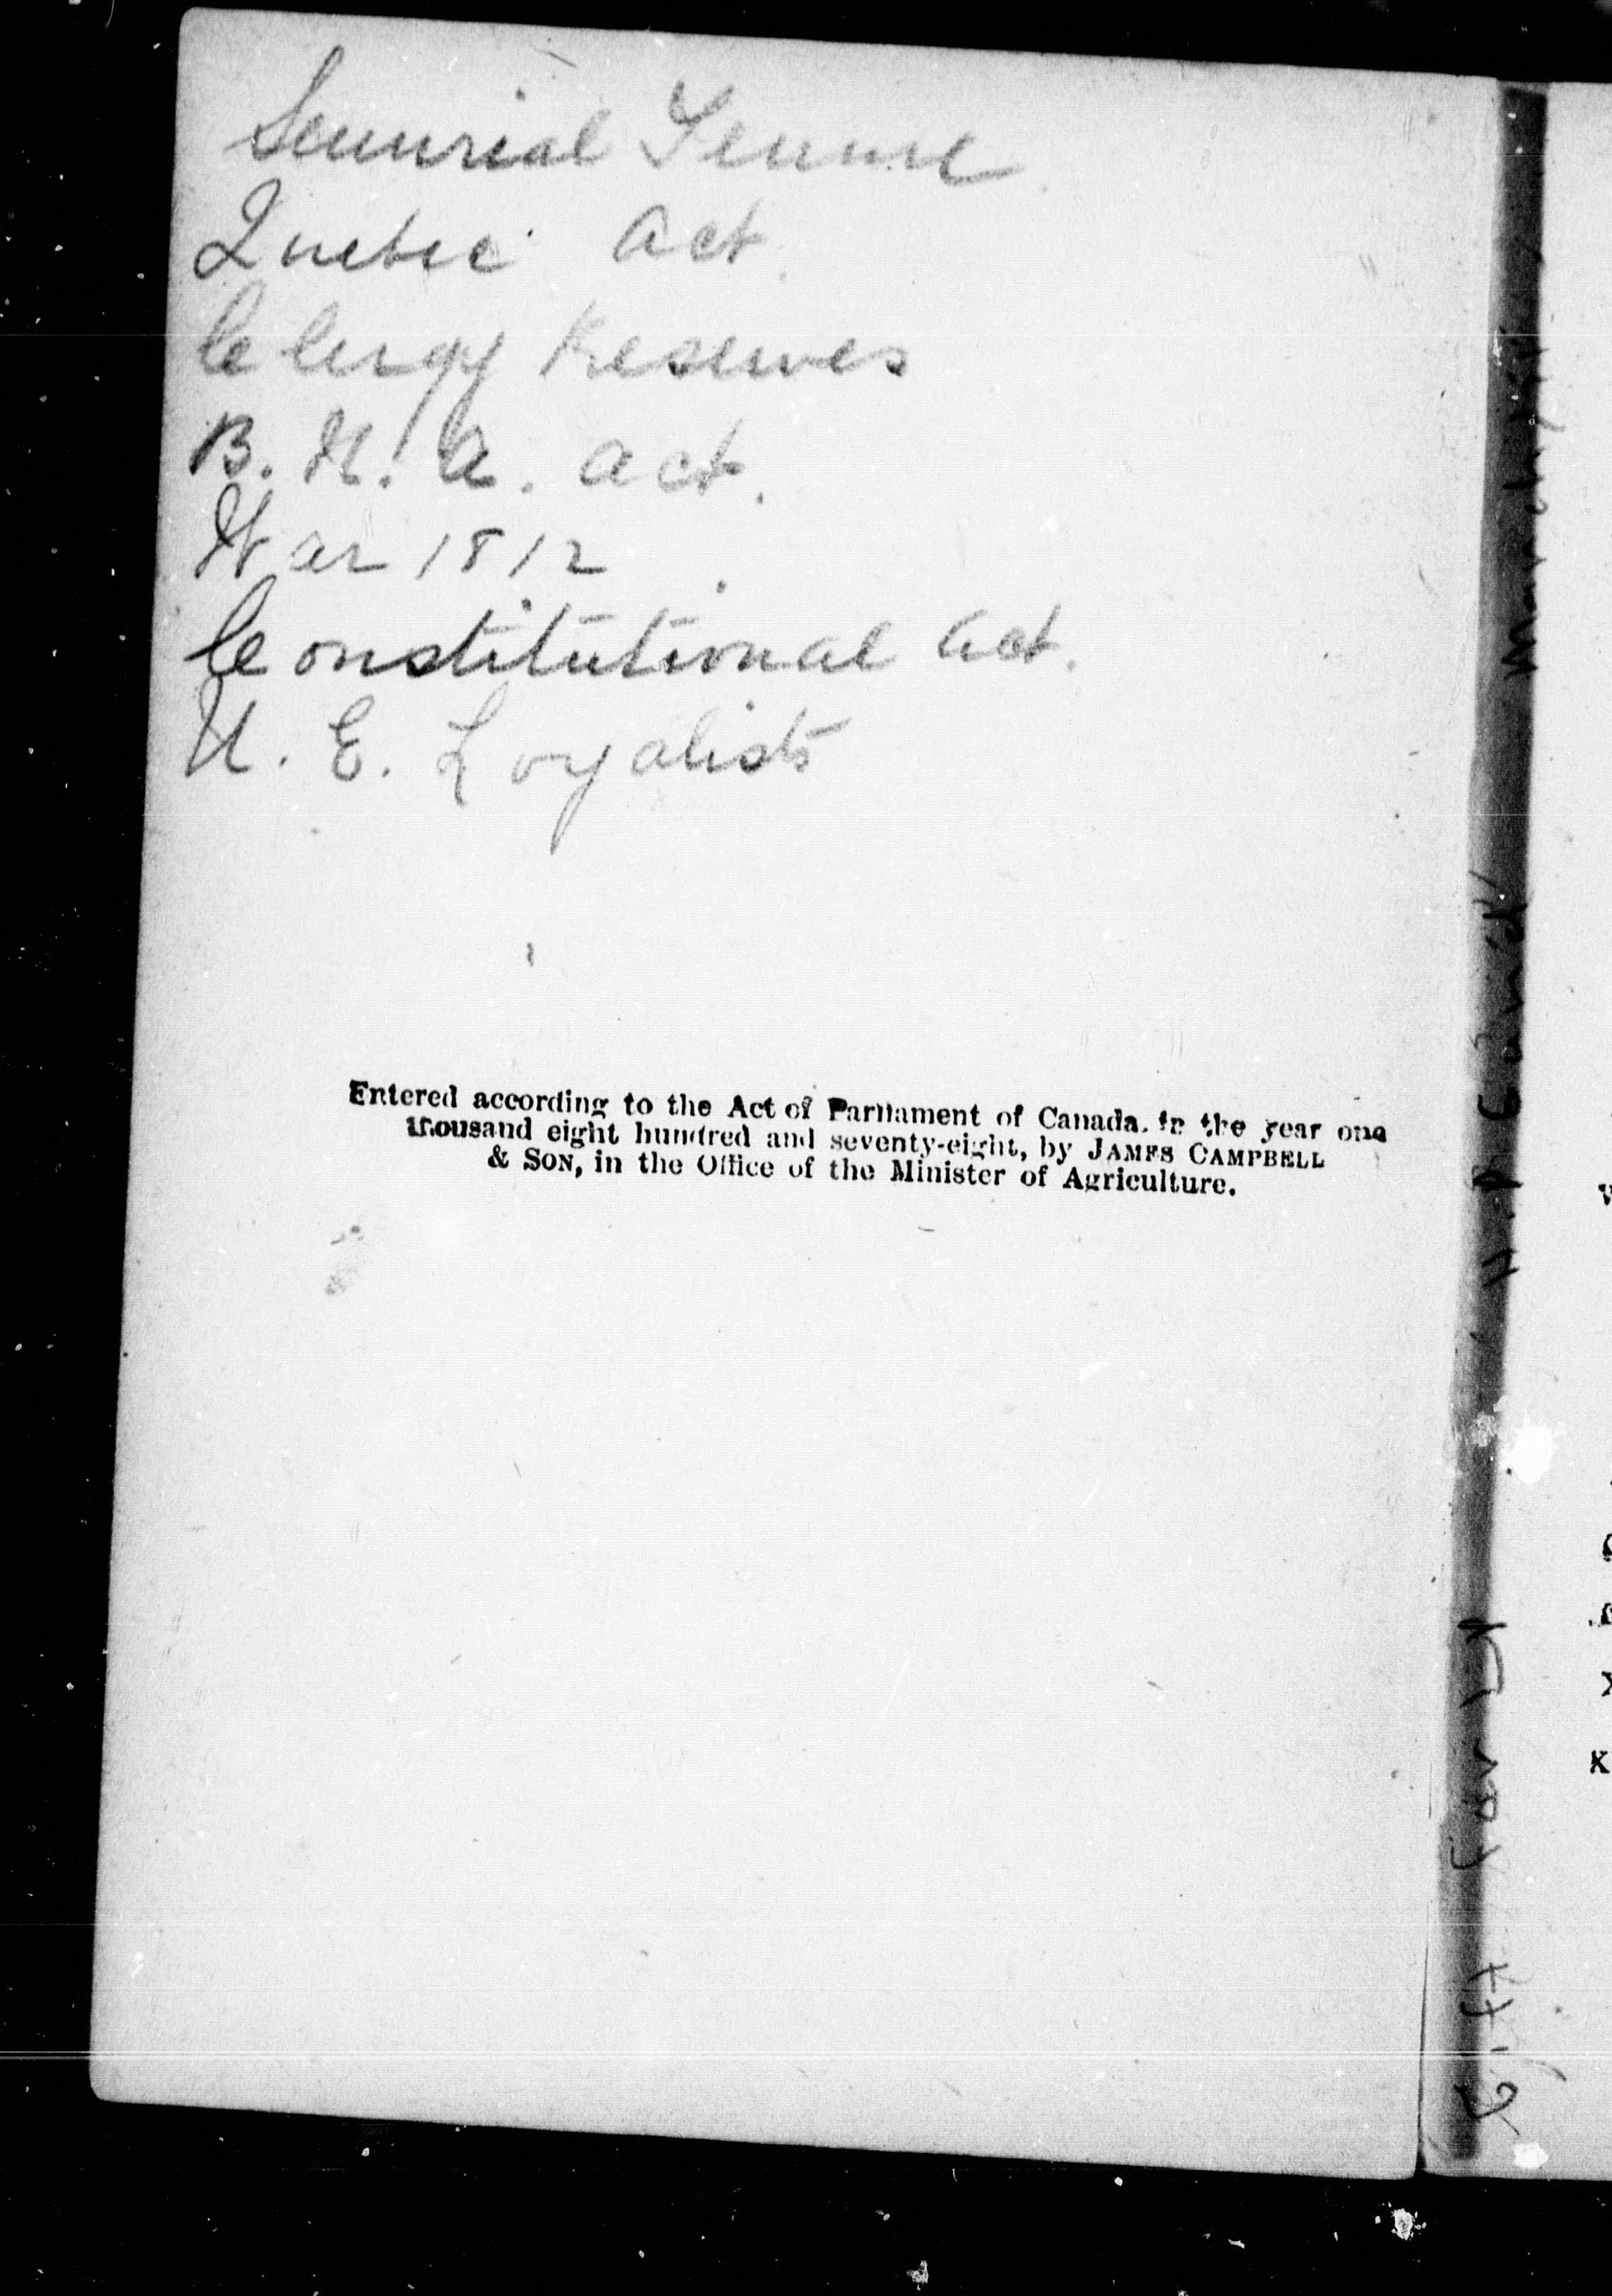 Seunrial Tenure
Quebec Act
Clergy Reserves
B. N. A. Act.
War 1812
Constitutional Act.
U. E. Loyalists
Entered according to the Act of Parliament of Canada, in the year one
thousand eight hundred and seventy-eight, by JAMES CAMPBELL
& SON, in the Office of the Minister of Agriculture.